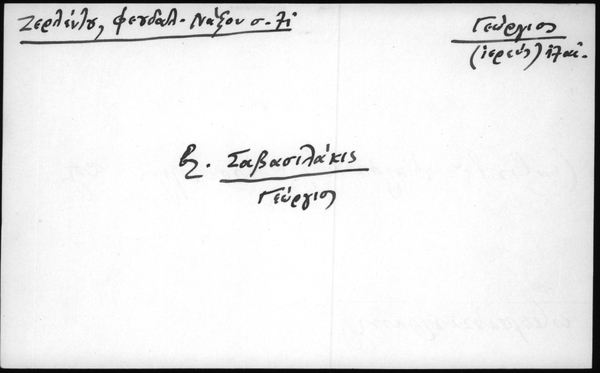 Ζερλέντη, Φεουδαλ. Νάξου σ.
Γεώργιος
(ἱερεύς)
βλ. Σαβασιλάκις
Γεώργιος